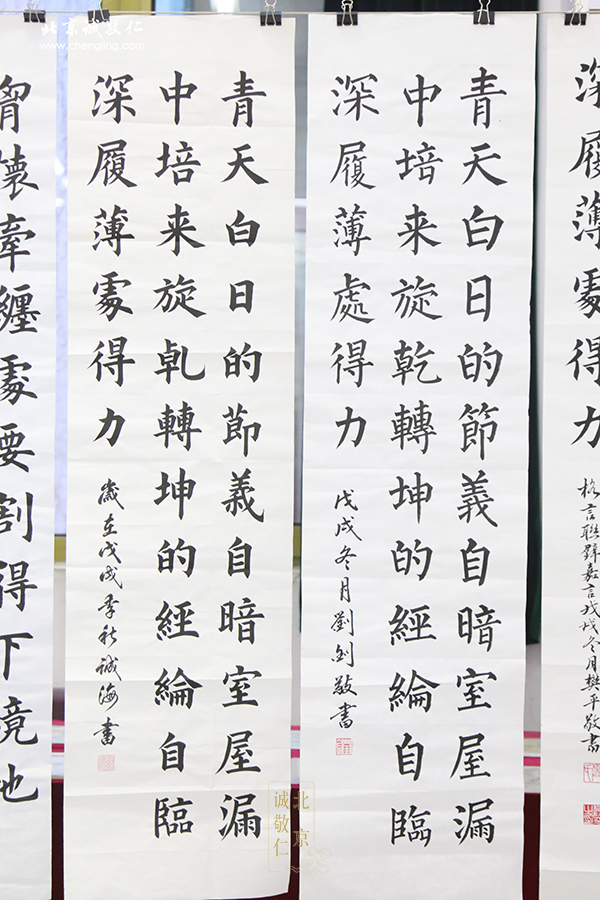 北京诚敬仁
www.chengjing.com
深履薄處得力
格言聯璧嘉言戊戌冬月樊平敬書
青天白日的節義自暗室屋漏
中培来旋乾轉坤的經綸自臨
深履薄處得力
戊戌冬月劉剑敬書
青天白日的節義自暗室屋漏
中培来旋乹轉坤的經綸自臨
深履薄處得力
歲在戊戌季秋誠海書
胷懐牽纏處要割得下境地
北京
诚敬仁